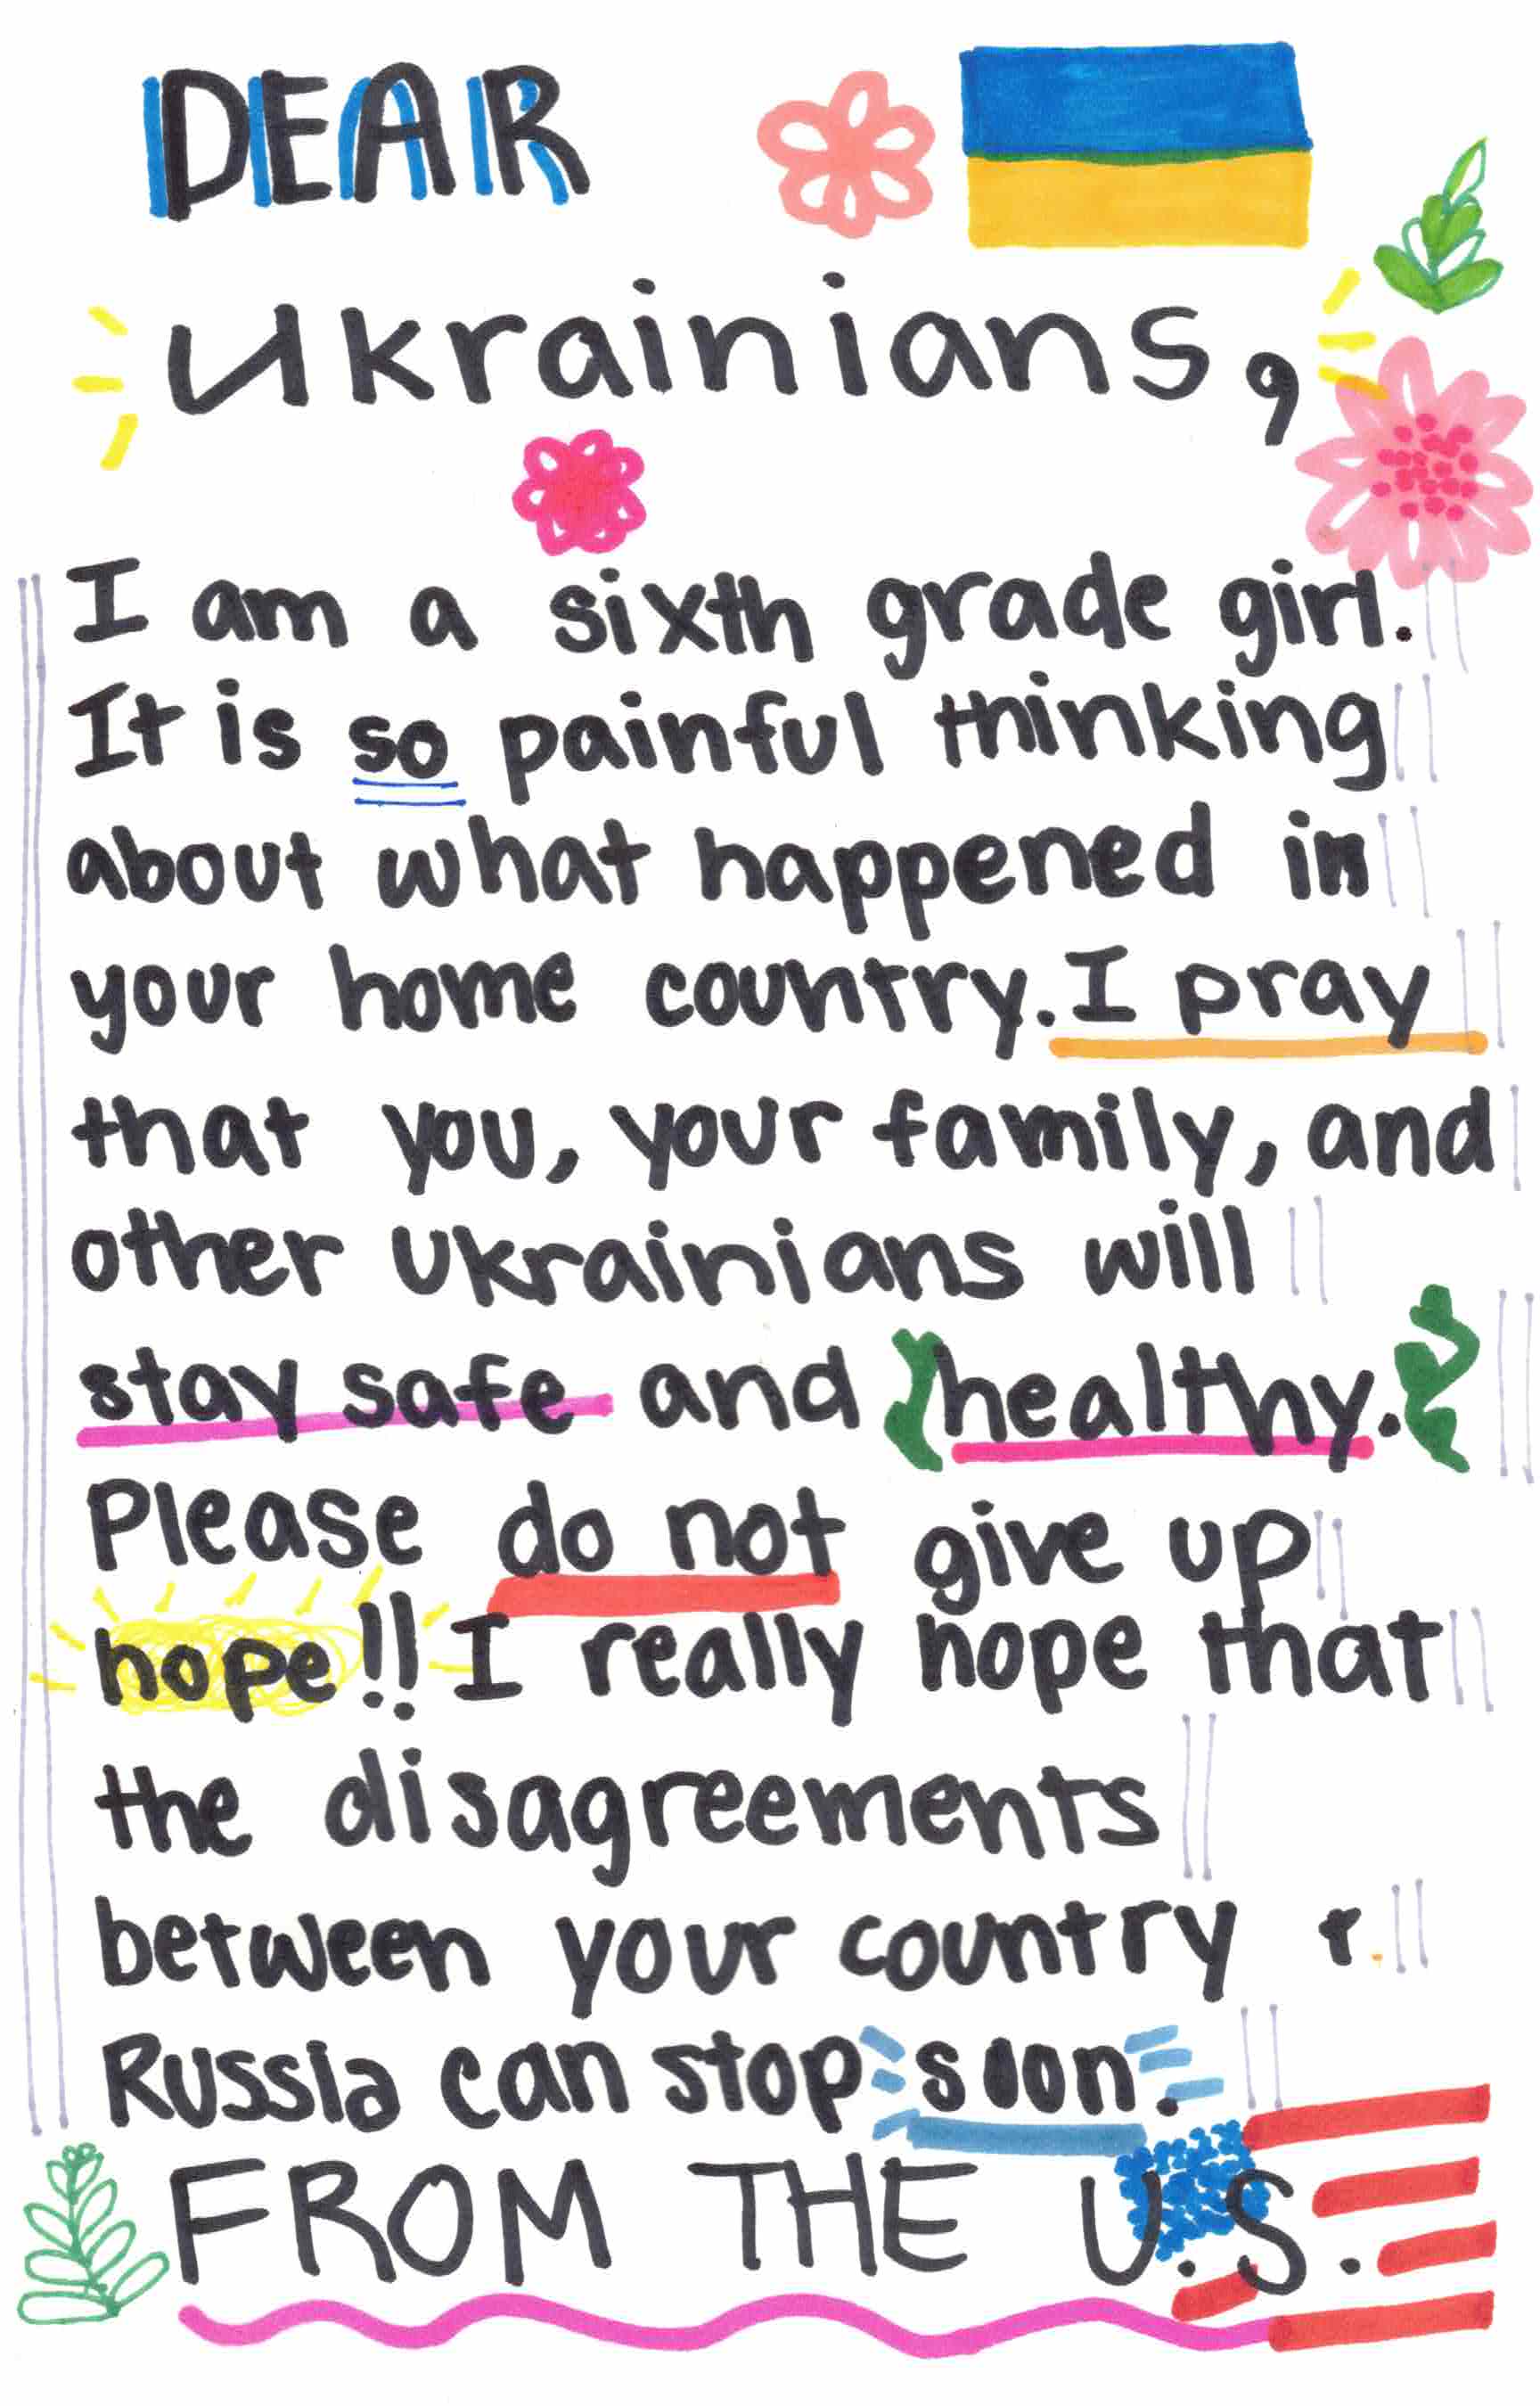 DEAR
Ukrainians,
I am a sixth grade girl.
It is so painful thinking
about what happened in
your home country. I pray
that you, your family, and
other Ukrainians will
stay safe and healthy.
Please do not give up
hope!! I really hope that
the disagreements
between your country +
Russia can stop soon.
FROM THE U.S.